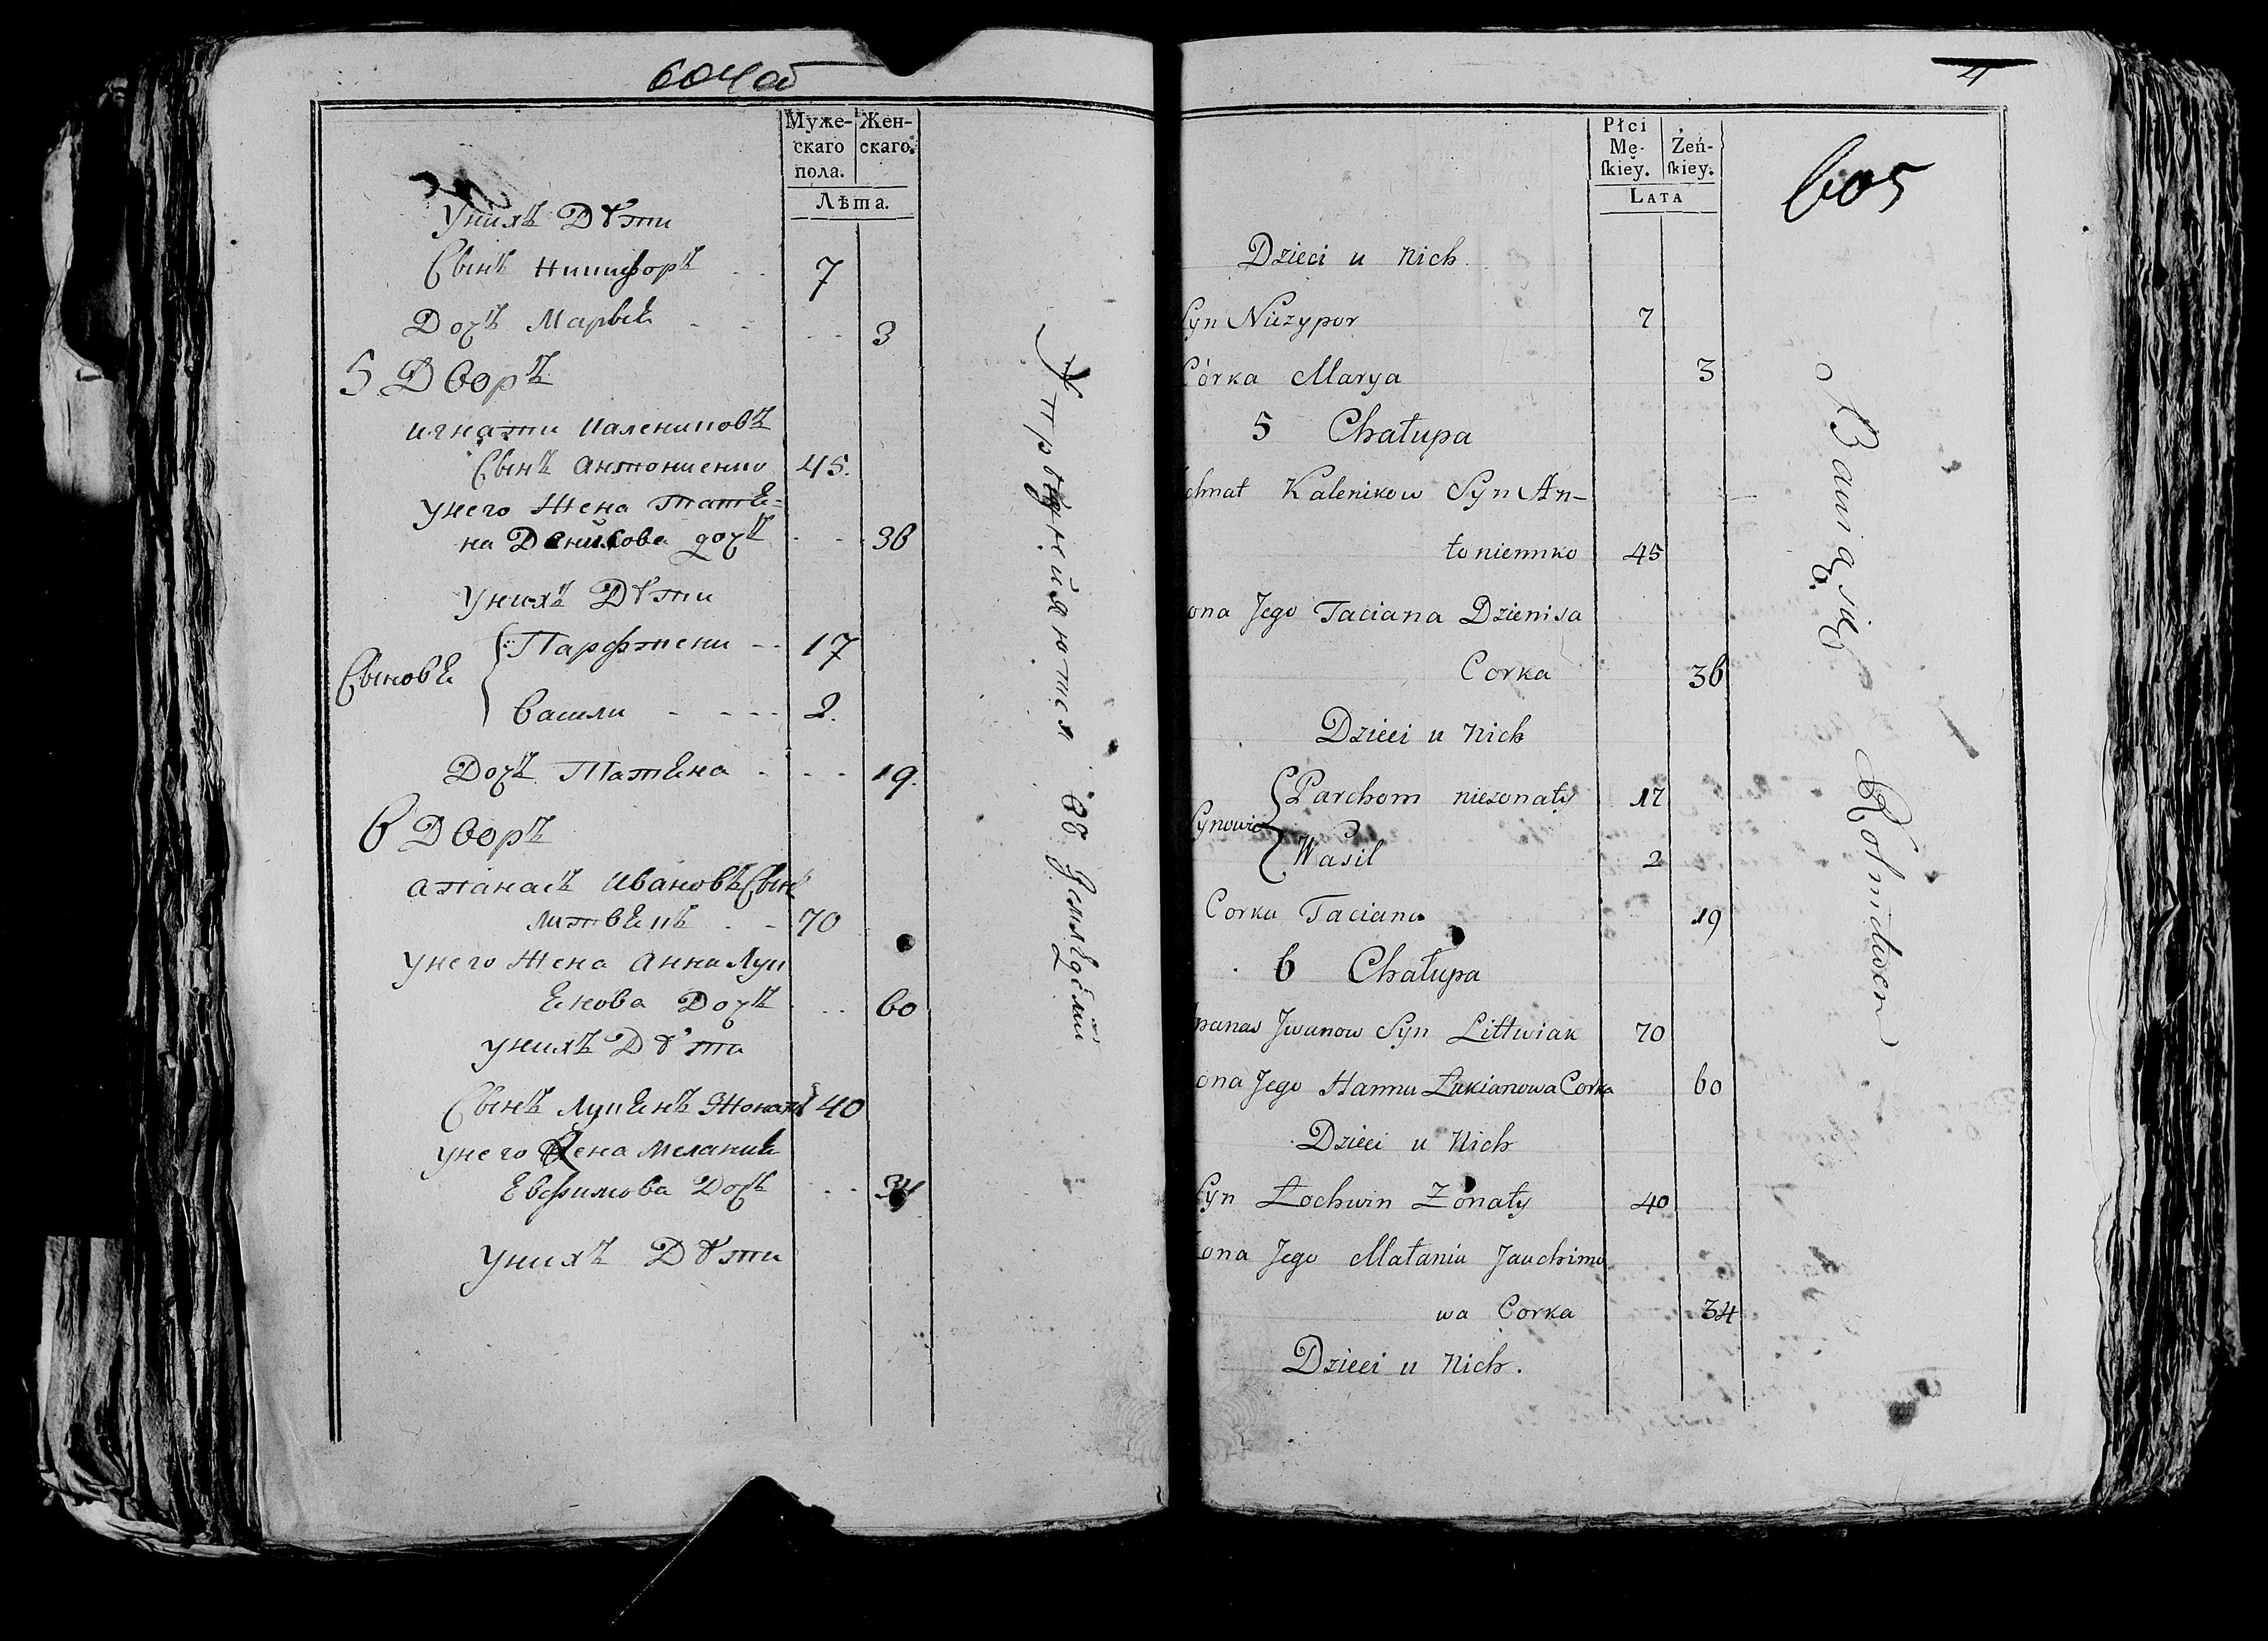 604 об
Муже-
скаго
пола.
Жен-
скаго.
Лѣта.
У нихъ Дѣти
Сынъ Никифоръ 7
Дочь Марья 3
5 Дворъ
Игнатий Калениковъ
Сынъ Антониенко 45.
У него Жена Татья-
на Денисова дочь 36
У нихъ Дѣти
Сыновья
Парфтени 17
Васили 2.
Дочь Татьяна 19.
6 Дворъ
Апанасъ Ивановъ Сынъ
Литвякъ 70
У него Жена Анна Лук
янова Дочь 60
У нихъ Дѣти
Сынъ Лукянъ Жонатъ 40
У него Жена Мелания
Евфимова Дочь 34
У нихъ Дѣти
Упражняются въ Земледѣлии
4
605
Płci
Mę-
skiey.
Żeń-
skiey.
LATA
Dzieci u Nich.
Syn Niczypor 7
Córka Marya 3
5 Chałupa
Ichnat Kalenikow Syn An-
toniennko 45
ona Jego Taciana Dzienisa
Corka 36
Dzieci u Nich
Synowie
Parchom niezonaty 17
Wasil 2
Corka Taciana 19
6 Chałupa
Apanas Jwanow Syn Littwiak 70
ona Jego Hanna Łukianowa Corka 60
Dzieci u Nich
Syn Łochwin Zonaty 40
ona Jego Małania Jauchimo
wa Corka 34
Dzieci u Nich.
Bawią się Rolnictwem